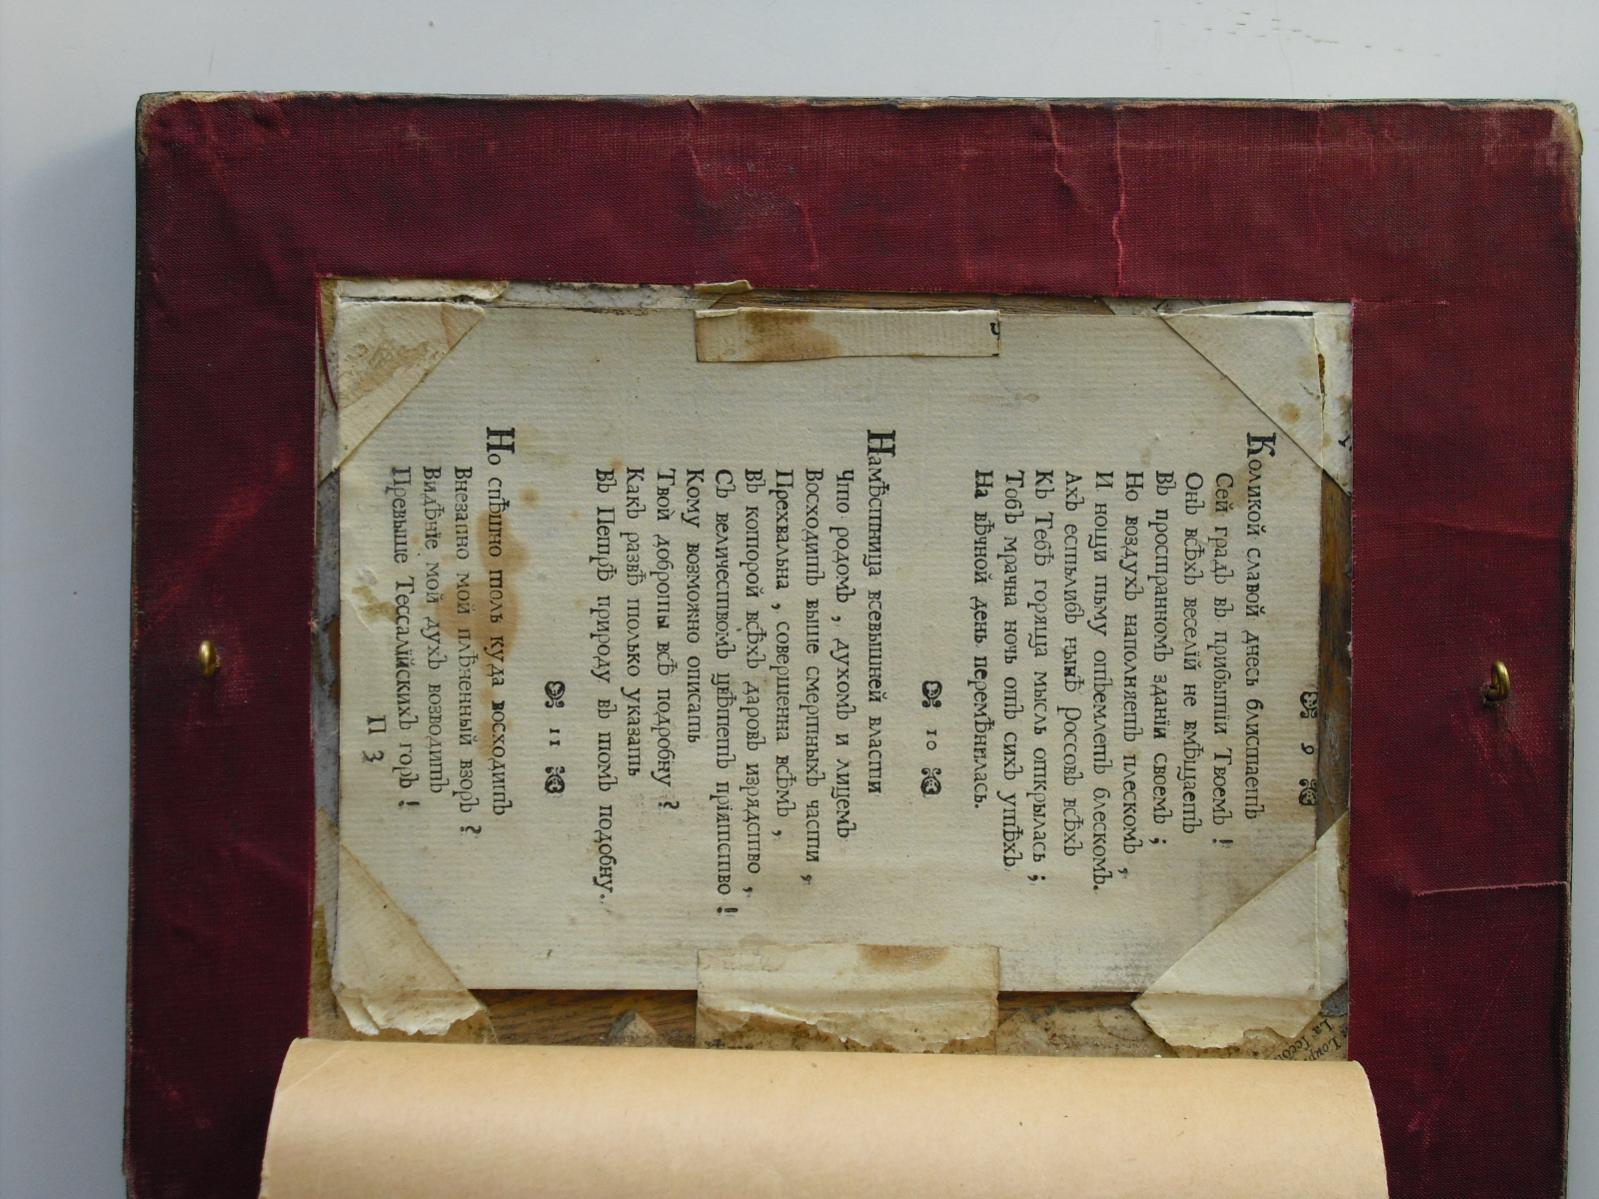 9
Коликой славой днесь блистаетъ
Сей градъ въ прибытїи Твоемъ !
Онъ всѣхъ веселїй не вмѣщаетъ
Въ пространномъ зданїи своемъ ;
Но воздухъ наполняетъ плескомъ ,
И нощи тьму отъемлетъ блескомъ.
Ахъ естьлибъ нынѣ Россовъ всѣхъ
Къ Тебѣ горяща мысль открылась ;
Тобъ мрачна ночь отъ сихъ утѣхъ
На вѣчной день перемѣнилась.
10
Намѣстница всевышней власти
Что родомъ , духомъ и лицемъ
Восходитъ выше смертныхъ части ,
Прехвальна , совершенна всѣмъ ,
Въ которой всѣхъ даровъ изрядство ,
Съ величествомъ цвѣтетъ прїятство !
Кому возможно описать
Твои доброты всѣ подробну ?
Какъ развѣ только указать
Въ Петрѣ природу въ томъ подобну.
11
Но спѣшно толь куда восходитъ
Внезапно мой плѣненный взоръ ?
Видѣнїе мой духъ возводитъ
Превыше Тессалїйскихъ горъ !
П 3